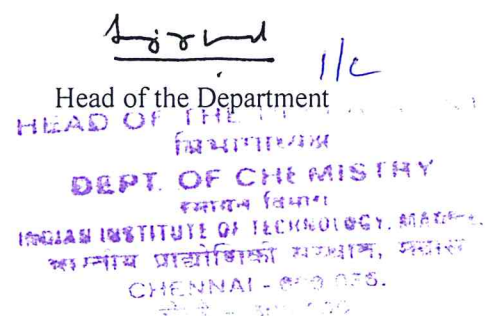 I/C
Head of the Department
HEAD OF THE
विभागाध्यक्ष
DEPT. OF CHEMISTRY
रसायन विभाग
INDIAN INSTITUTE OF TECHNOLOGY, MADRAS
भारतीय प्रौद्योगिकी संस्थान, मद्रास
CHENNAI - 600 036.